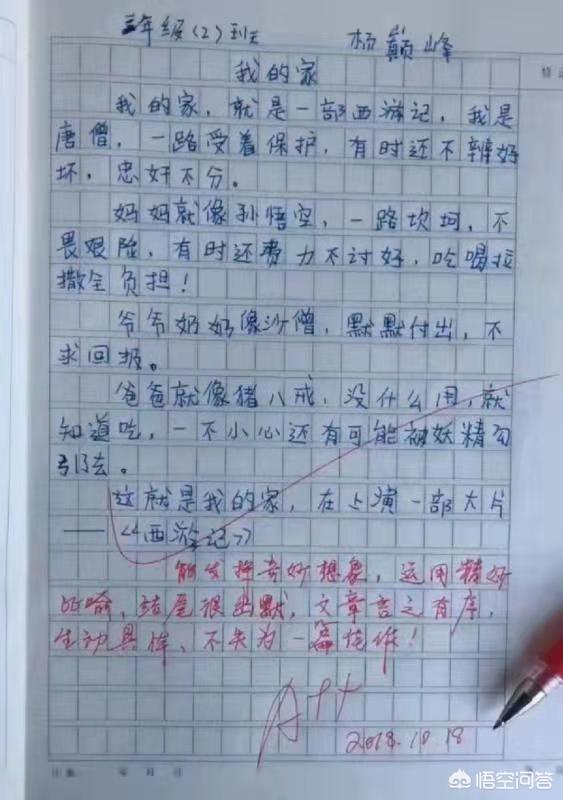 三年级（2）班 杨巅峰
我的家
我的家，就是一部西游记，我是
唐僧，一路受着保护，有时还不辨好
坏，忠奸不分。
妈妈就像孙悟空，一路坎坷，不
畏艰险，有时还费力不讨好，吃喝拉
撒全负担！
爷爷奶奶像沙僧，默默付出，不
求回报。
爸爸就像猪八戒，没什么用，就
知道吃，一不小心还有可能被妖精勾
引去。
这就是我的家，在上演一部大片
——《西游记》
能发挥奇妙想象，运用精妙
比喻，结尾很幽默，文章言之有序，
生动具体，不失为一篇佳作！
A++
2018.10.18
日期： 年 月 日
悟空问答